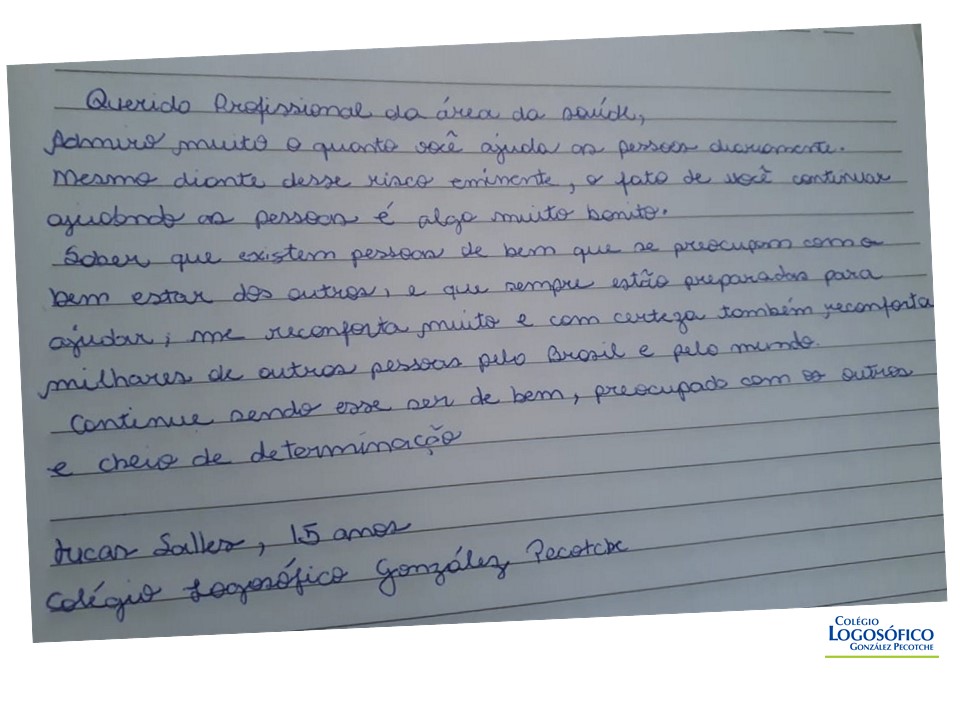 Querido Profissional da área da saúde,
Admiro muito o quanto você ajuda as pessoas diariamente.
Mesmo diante desse risco eminente, o fato de você continuar
ajudando as pessoas é algo muito bonito.
Saber que existem pessoas de bem que se preocupam com o
bem estar dos outros, e que sempre estão preparadas para
ajudar, me reconforta muito e com certeza também reconforta
milhares de outras pessoas pelo Brasil e pelo mundo.
Continue sendo esse ser de bem, preocupado com os outros
e cheio de determinação
Lucas Salles, 15 anos
Colégio Logosófico González Pecotche
COLÉGIO
LOGOSÓFICO
GONZÁLEZ PECOTCHE